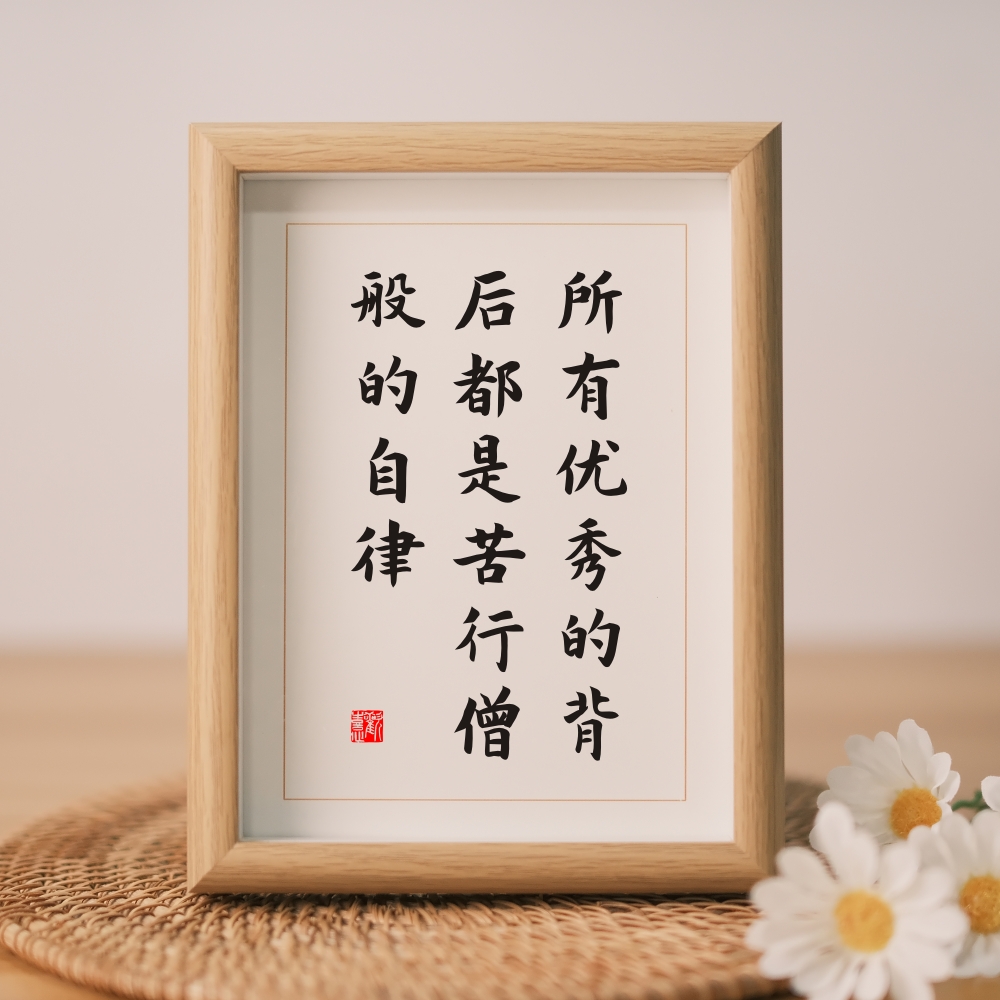 所有优秀的背
后都是苦行僧
般的自律